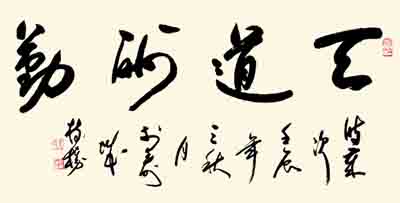 天道酬勤
時歲次壬辰年三秋月於